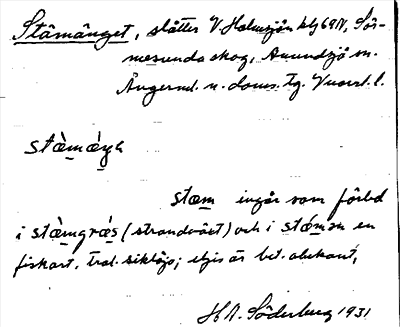 Stämänget, slåtter V Holmsjön kbl 69N, Sör-
mesunda skog, Anundsjö sn.
Ångerml. n. doms. tg. Vuorrl.
stæ̀mæ̀ŋa
stæm ingår som förled
i stæ̀mgræ̀s (strandväxt) och i stǽmsn en
fiskart, trol. siklöja; eljes är bet. okänt,
H N. Söderberg 1931